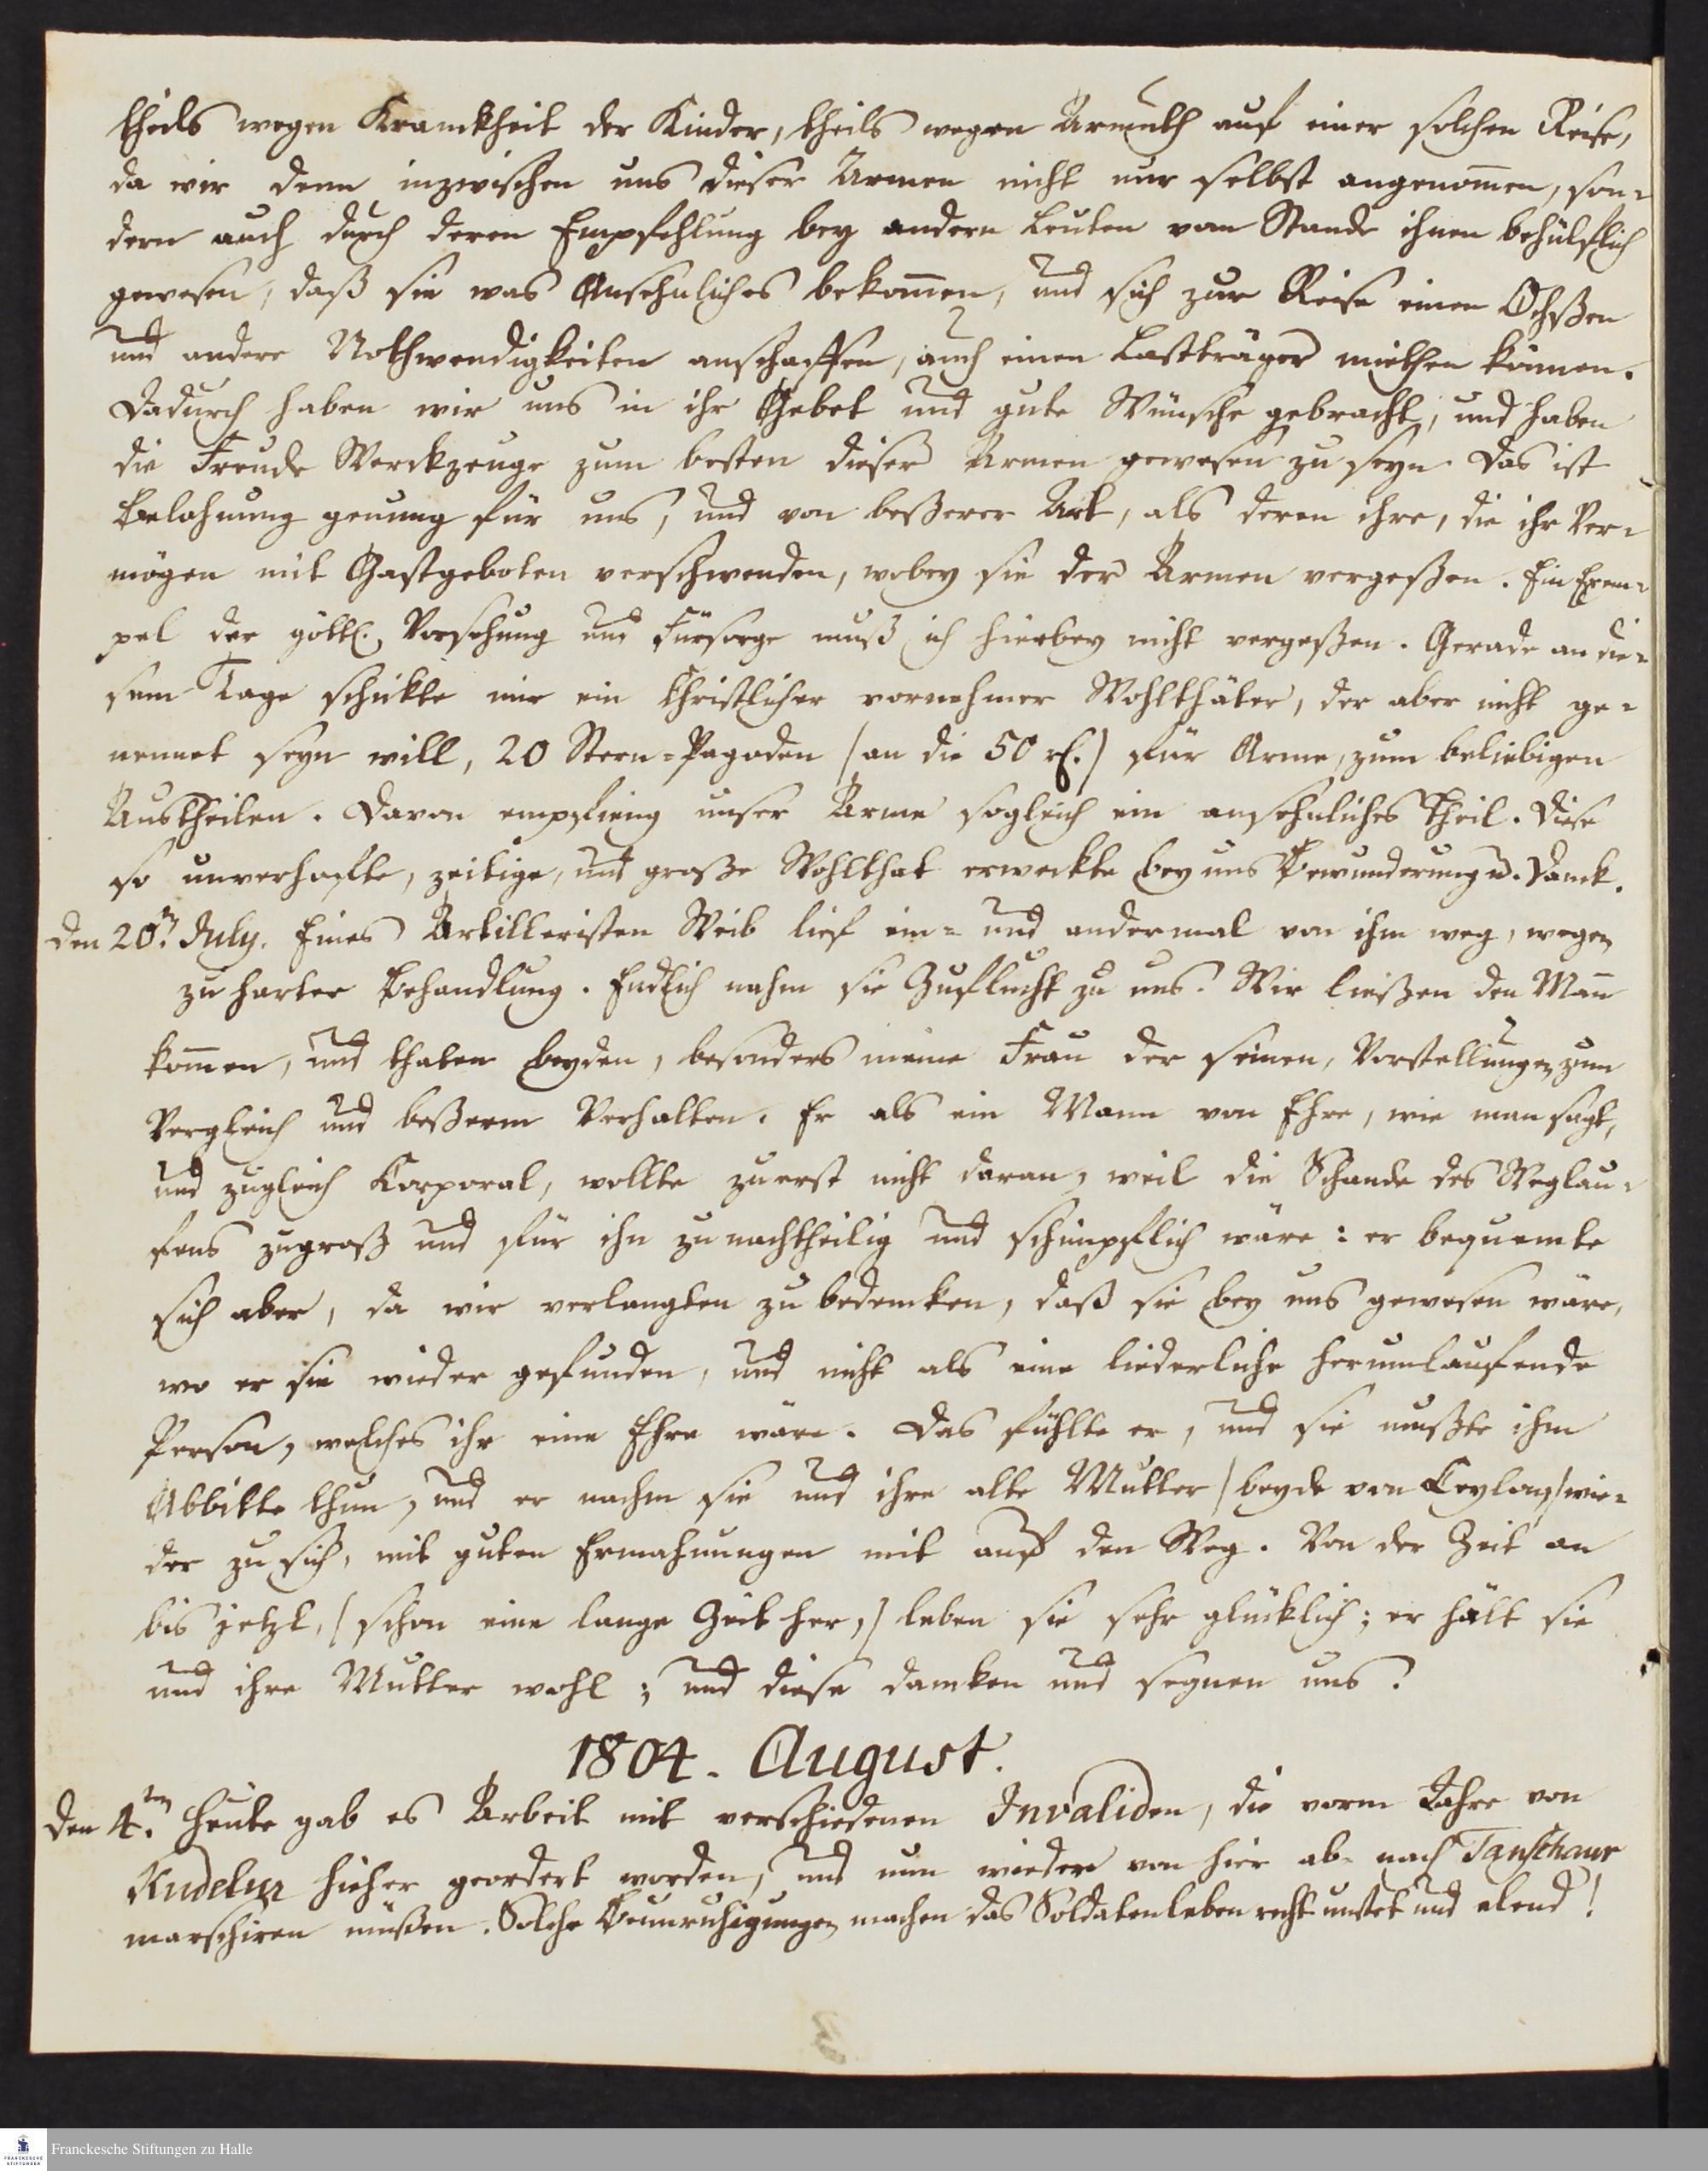 theils wegen Kranckheit der Kinder, theils wegen Armuth auf einer solchen Reise,
da wir denn inzwischen uns dieser Armen nicht nur selbst angenom̄en, son-
dern auch durch deren Empfehlung bey andern Leuten vom Stande ihnen behülflich
gewesen, daß sie was Ansehnliches bekom̄en, und sich zur Reise einen Ochßen
und andere Nothwendigkeiten anschaffen, auch einen Lastträger miethen können.
Dadurch haben wir uns in ihr Gebet und gute Wünsche gebracht, und haben
die Freude Werckzeuge zum besten dieser Armen gewesen zu seyn. Das ist
Belohnung genung für uns, und von beßerer Art, als deren ihre, die ihr Ver-
mögen mit Gastgeboten verschwenden, wobey sie der Armen vergeßen. Ein Exem-
pel der göttl. Vorsehung und Fürsorge muß ich hierbey nicht vergeßen. Gerade an die-
sem Tage schickte mir ein Christlicher vornehmer Wohlthäter, der aber nicht ge-
nennet seyn will, 20 Stern-Pagoden (an die 50 rl.) für Arme, zum beliebigen
Austheilen. Davon empfieng unser Arme sogleich ein ansehnliches Theil. Diese
so unverhofte, zeitige, und große Wohlthat erweckte bey uns Bewunderung u. Danck.
Den 20.ᵗ July. Eines Artilleristen Weib lief ein- und andermal von ihm weg, wegen
zu harter Behandlung. Endlich nahm sie Zuflucht zu uns. Wir ließen den Man̄
kom̄en, und thaten beyden, besonders meine Frau der seinen, Vorstellungen zum
Vergleich und beßerm Verhalten. Er als ein Mann von Ehre, wie man sagt,
und zugleich Korporal, wollte zuerst nicht daran, weil die Schande des Weglau-
fens zugroß und für ihn zu nachtheilig und schimpflich wäre: er bequemte
sich aber, da wir verlangten zu bedencken, daß sie bey uns gewesen wäre,
wo er sie wieder gefunden, und nicht als eine liederliche herumlaufende
Person, welches ihr eine Ehre wäre. Das fühlte er, und sie mußte ihm
Abbitte thun, und er nahm sie und ihre alte Mutter (beyde von Ceylon) wie-
der zu sich, mit guten Ermahnungen mit auf den Weg. Von der Zeit an
bis jetzt, (schon eine lange Zeit her,) leben sie sehr glücklich; er hält sie
und ihre Mutter wohl; und diese dancken und segnen uns.
1804. August.
Den 4.ᵗᵉⁿ Heute gab es Arbeit mit verschiedenen Invaliden, die vorm Jahre von
Kudelur hieher geordert worden, und nun wieder von hier ab- nach Tanschaur
marschiren müßen. Solche Beunruhigungen machen das Soldatenleben recht unstet und elend!
Franckesche Stiftungen zu Halle